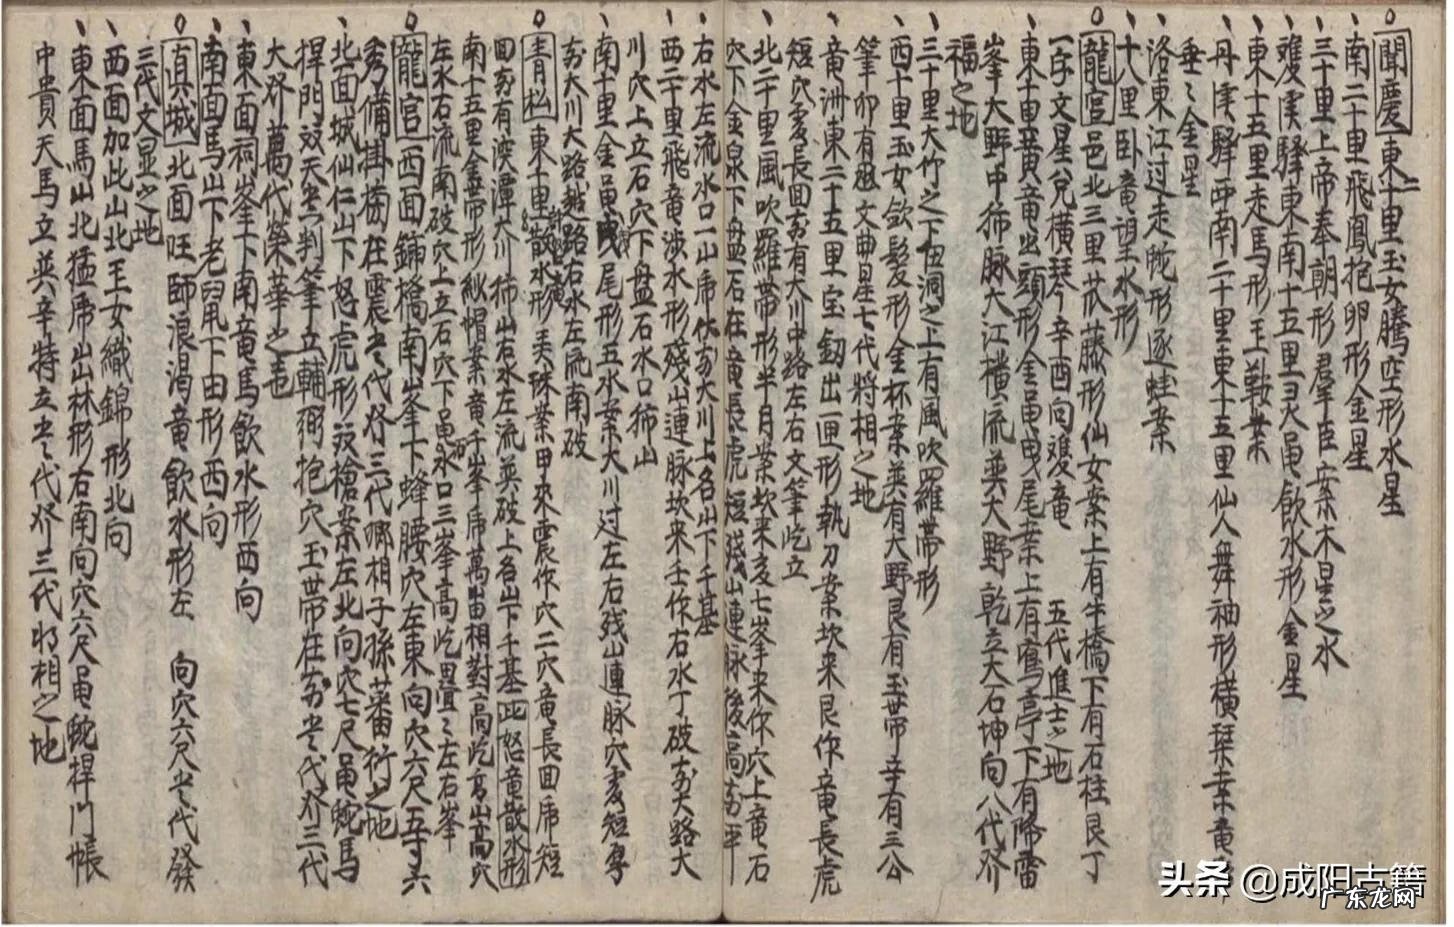 聞慶東二十里玉女騰空形水星
南二十里飛鳳抱卵形金星
三十里上帝奉朝形羣臣案木星之水
䨥溪驛東南十五里灵黾飲水形金星
東十五里走馬形玉鞍案
丹溪驛西南二十里東十五里仙人舞袖形橫琹案竜
垂之金星
洛東江过走蛇形逐蛙案
十八里卧竜望水形
龍宮邑北三里苽藤形仙女案上有牛橋下有石柱艮丁
一字文星兌橫琴辛酉向䨥竜 五代進士之地
東十里黃竜出頭形金黾曳尾案上有窩亭下有降雷
峯大野中抪脉大江橫流英大野乾立大石坤向八代介
福之地
三十里大竹之下伍洞之上有風吹羅帶形
西十里玉女欽髮形金杯案英有大野艮有玉帶辛有三公
筆卯有文曲星七代將相之地
竜洲東二十五里宝釼出匣形執刀案坎来艮作竜長虎
短穴䨥長回前有大川中路左右文筆屹立
北二十里風吹羅帶形半月案坎来亥七峯来作穴上竜石
穴下金泉下盘石在竜長虎短殘山連脉後高前平
右水左流水口一山虎伏前大川上名山下千基
西二十里飛竜涉水形殘山連脉坎来壬作右水丁破前大路大
川穴上立石穴下盘石水口抪山
南十里金黾曳尾形五水案大川过左右残山連脉穴䨥短
前大川大路越路右水左流南破
青松東十里散水形美珠案甲来震作穴二穴竜長回虎短
回前有深潭大川抪山右水左流英破上名山下千基此怒竜散水形
南十五里金帶形紗帽案竜千峯虎萬笛相對高屹高山高穴
左水石流南破穴上立石穴下黾水口三峯高屹疊之左右峯
龍宮西面鋪橋南峯下蜂腰穴左東向穴六尺五寸六
秀備掛榜在震当代發三代卿相子孫蕃衍之地
北面城仙仁山下怒虎形双槍案左北向穴七尺黾蛇馬
捍門双天乙判筆立輔弼抱穴玉帶在前当代介三代
大介萬代榮華之地
東面祠峯下南竜馬飲水形西向
南面馬山下老鼠下由形西向
真城北面旺師浪渴竜飲水形左 向穴六尺当代發
三代文显之地
西面加此山北王女織錦形北向
東面馬山北猛虎出林形右南向穴六尺黾蛇捍门帳
中貴天馬立英辛特立当代介三代將相之地
头条 @成阳古籍
广东龙网